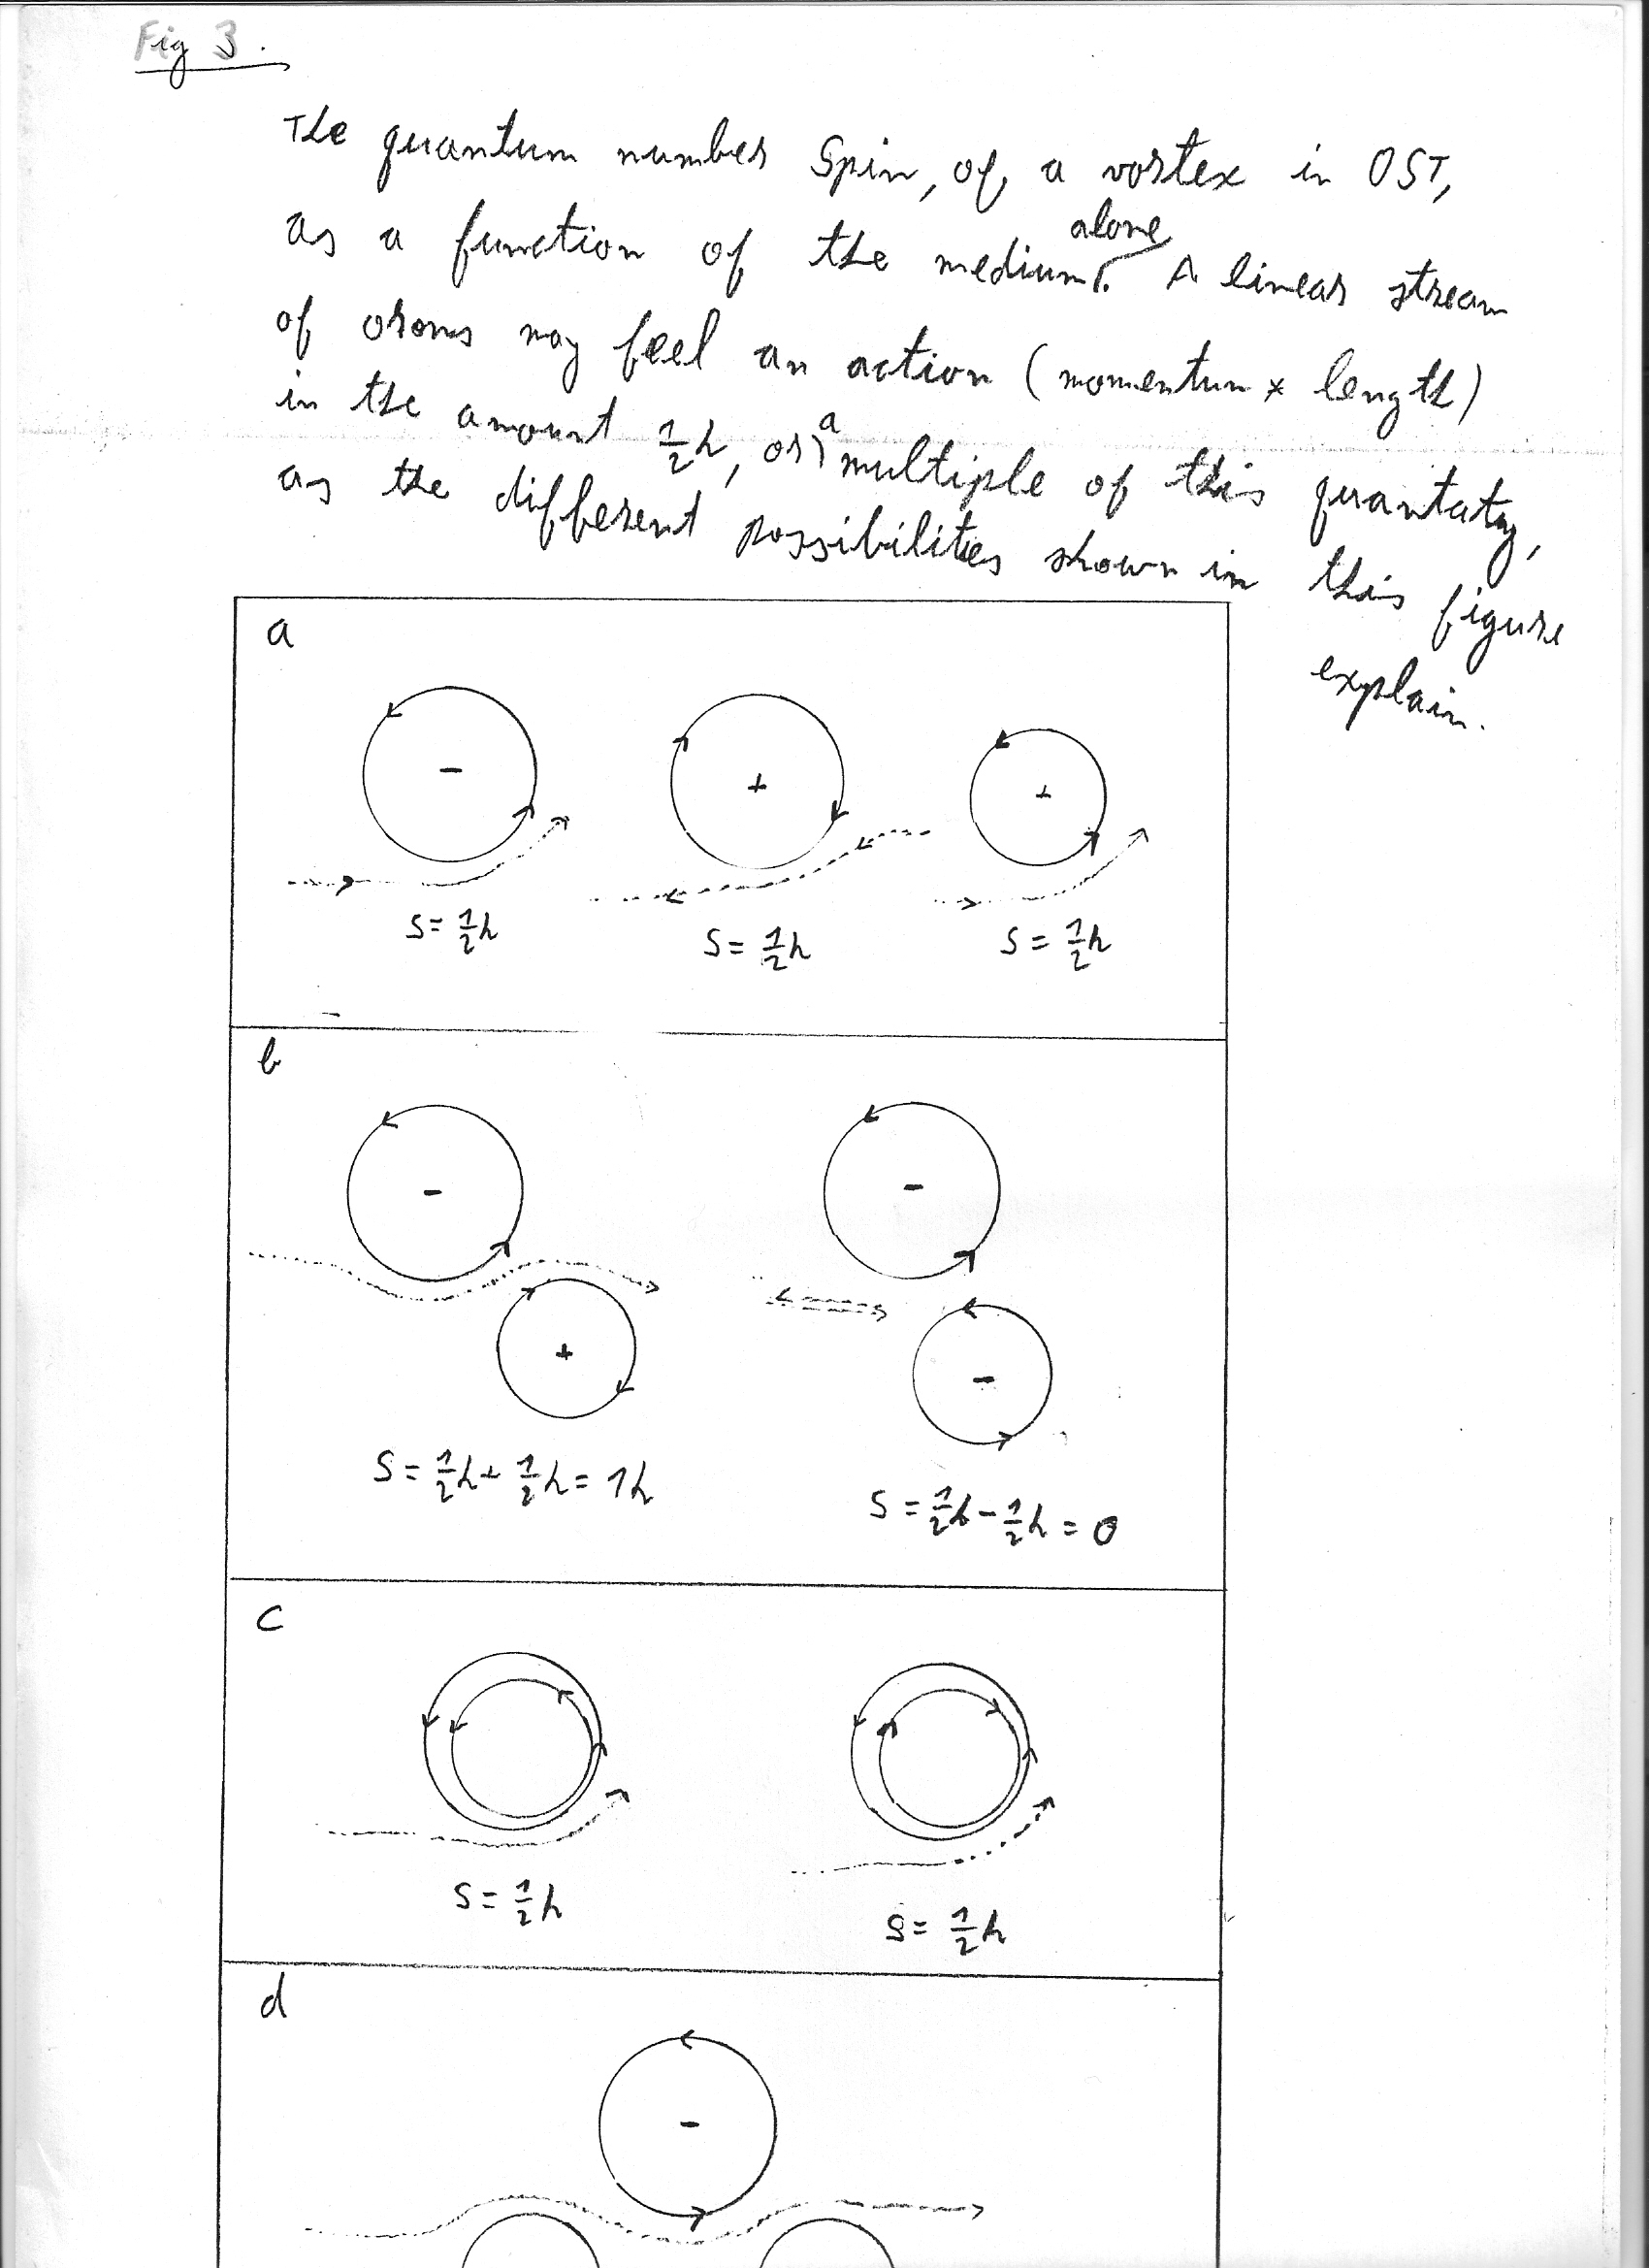 Fig 3.
The quantum number Spin, of a vortex in OST,
alone
as a function of the medium. A linear stream
of orons may feel an action (momentum * length)
in the amount 1/2h, or a multiple of this quantaty,
as the different possibilities shown in this figure
explain.
a
- + +
S= 1/2h S= 1/2h S= 1/2h
b
- -
+ -
S= 1/2h + 1/2h = 1h
S = 1/2h - 1/2h = 0
c
S= 1/2h S= 1/2h
d
-